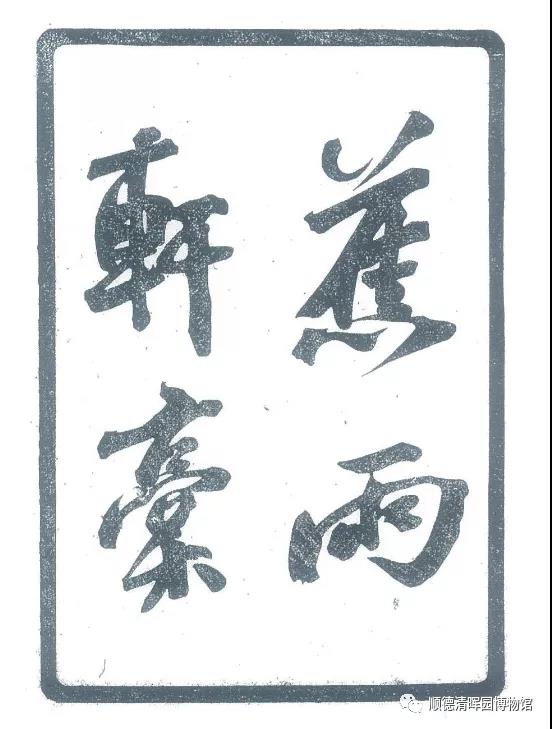 蕉雨
軒稾
顺德清晖园博物馆